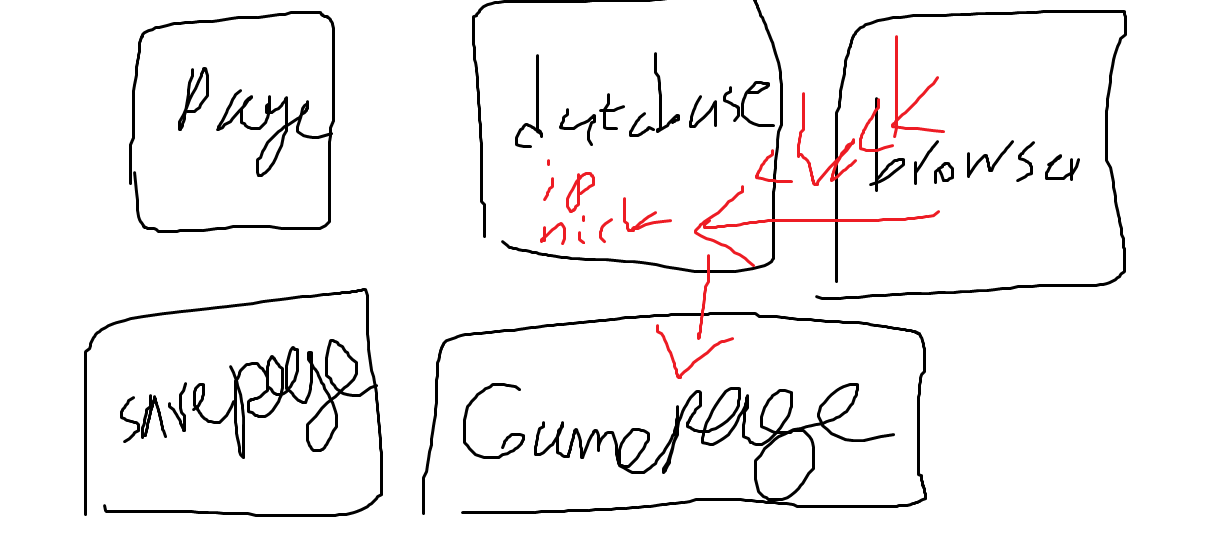 Page
database
ip
nick
click
browser
savepage
Gamepage